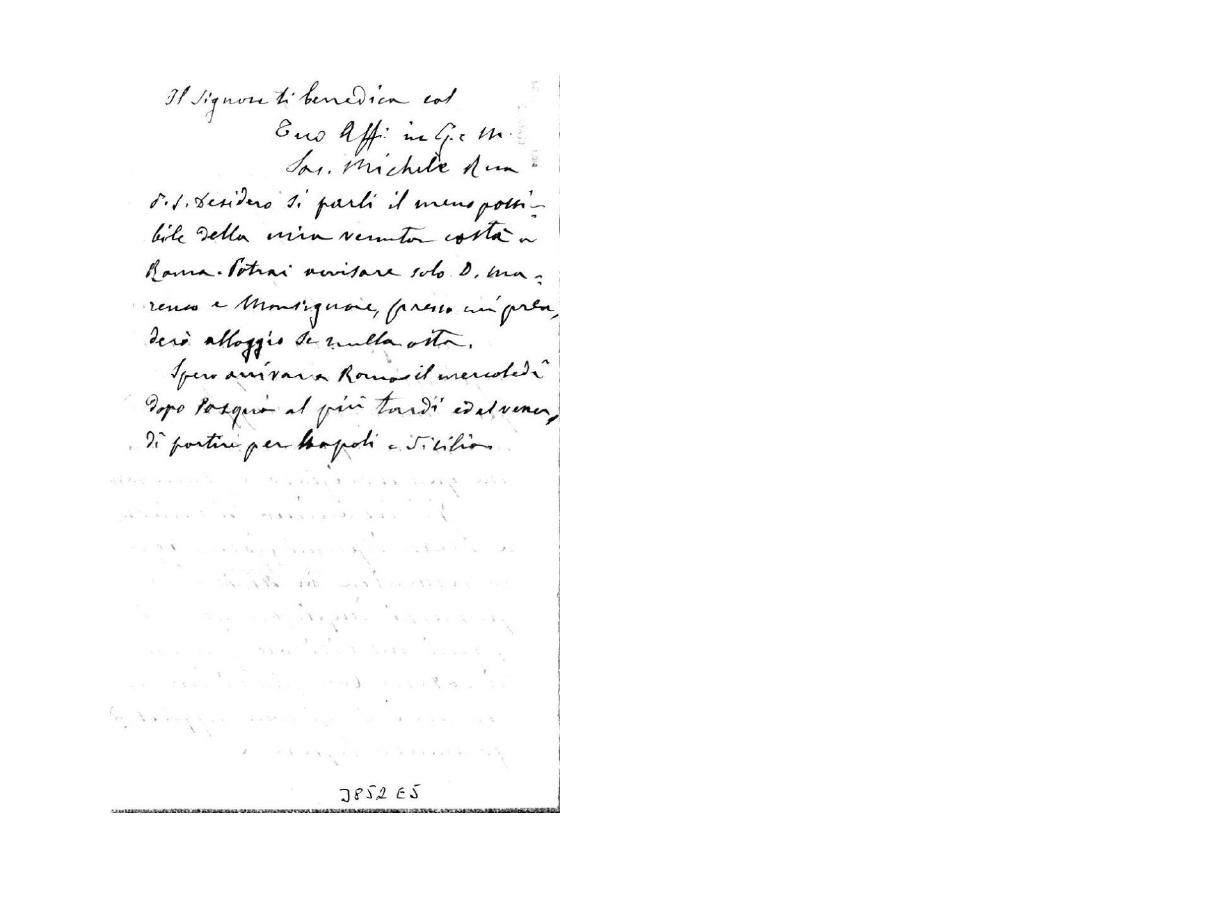 Il Signore ti benedica col
Tuo Aff. in G. e M.
Sac. Michele Rua
P. S. Desidero si parli il meno possi-
bile della mia venuta costà a
Roma. Potrai avvisare solo D. Ma-
renco e Monsignore, presso cui pren-
derò alloggio se nulla osta.
Spero arrivar a Roma il mercoledì
dopo Pasqua al più tardi ed al vener-
dì partire per Napoli e Sicilia
3852 E5